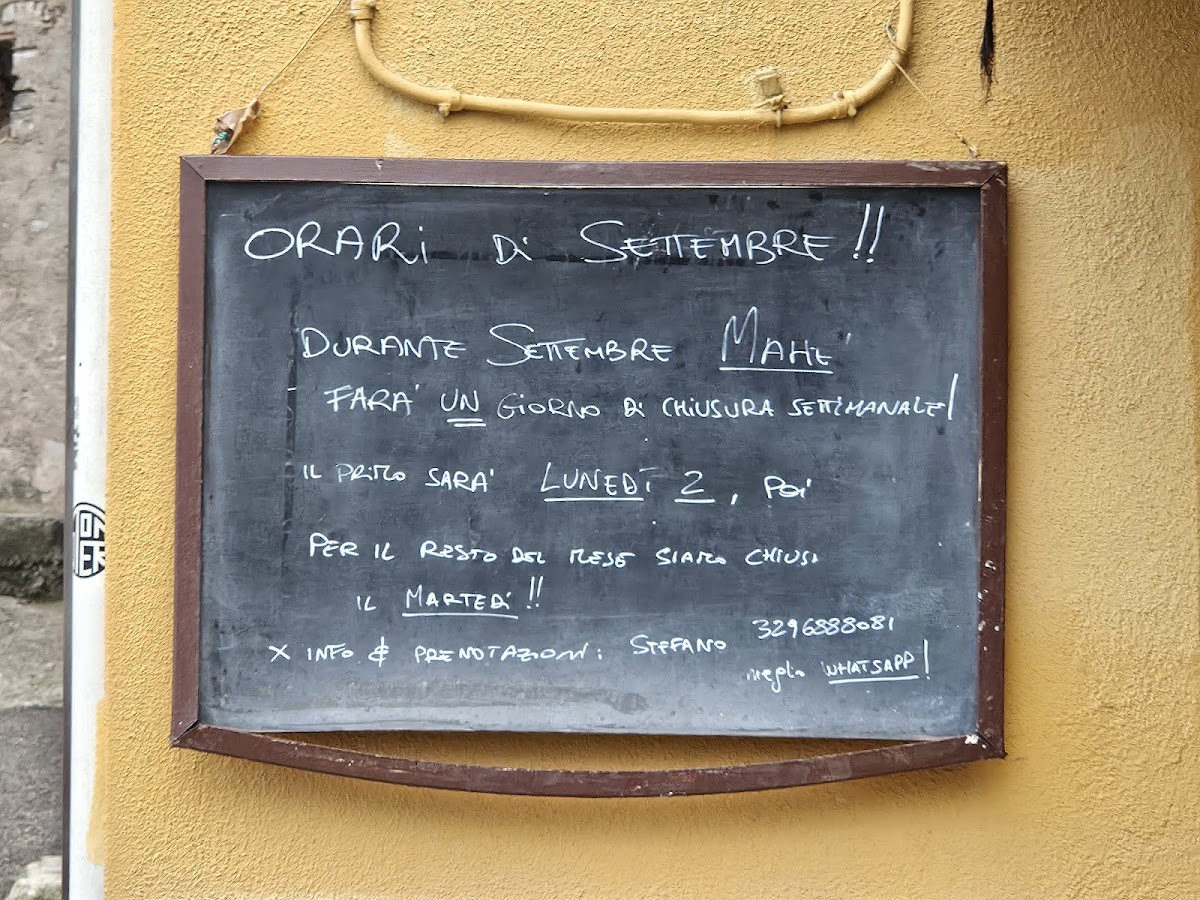 ORARi Di SETTEMBRE!!
DURANTE SETTEMBRE MAHE'
FARA' UN GIORNO Di CHIUSURA SETTIMANALE!
IL PRIMO SARA' LUNEDI 2, POI
PER IL RESTO DEL MESE SIAMO CHIUSI
IL MARTEDi!!
X INFO & PRENOTAZIONI: STEFANO 3296888081
meglio WHATSAPP!